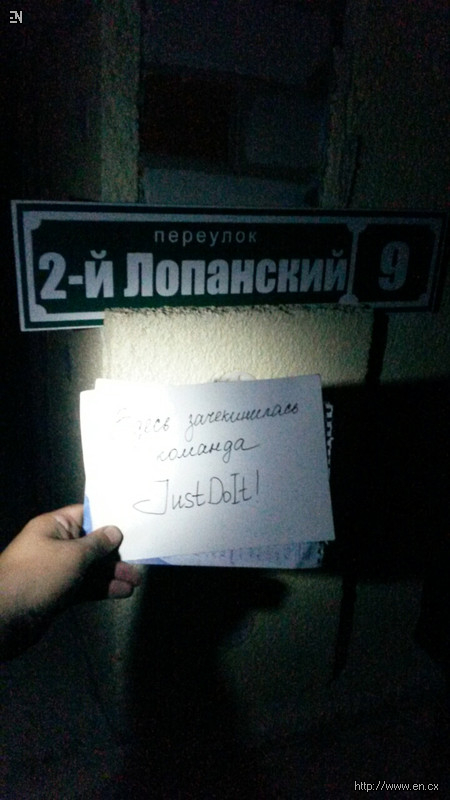 EN
переулок
2-й Лопанский 9
Здесь зачекинилась
команда
JustDoIt!
http://www.en.cx